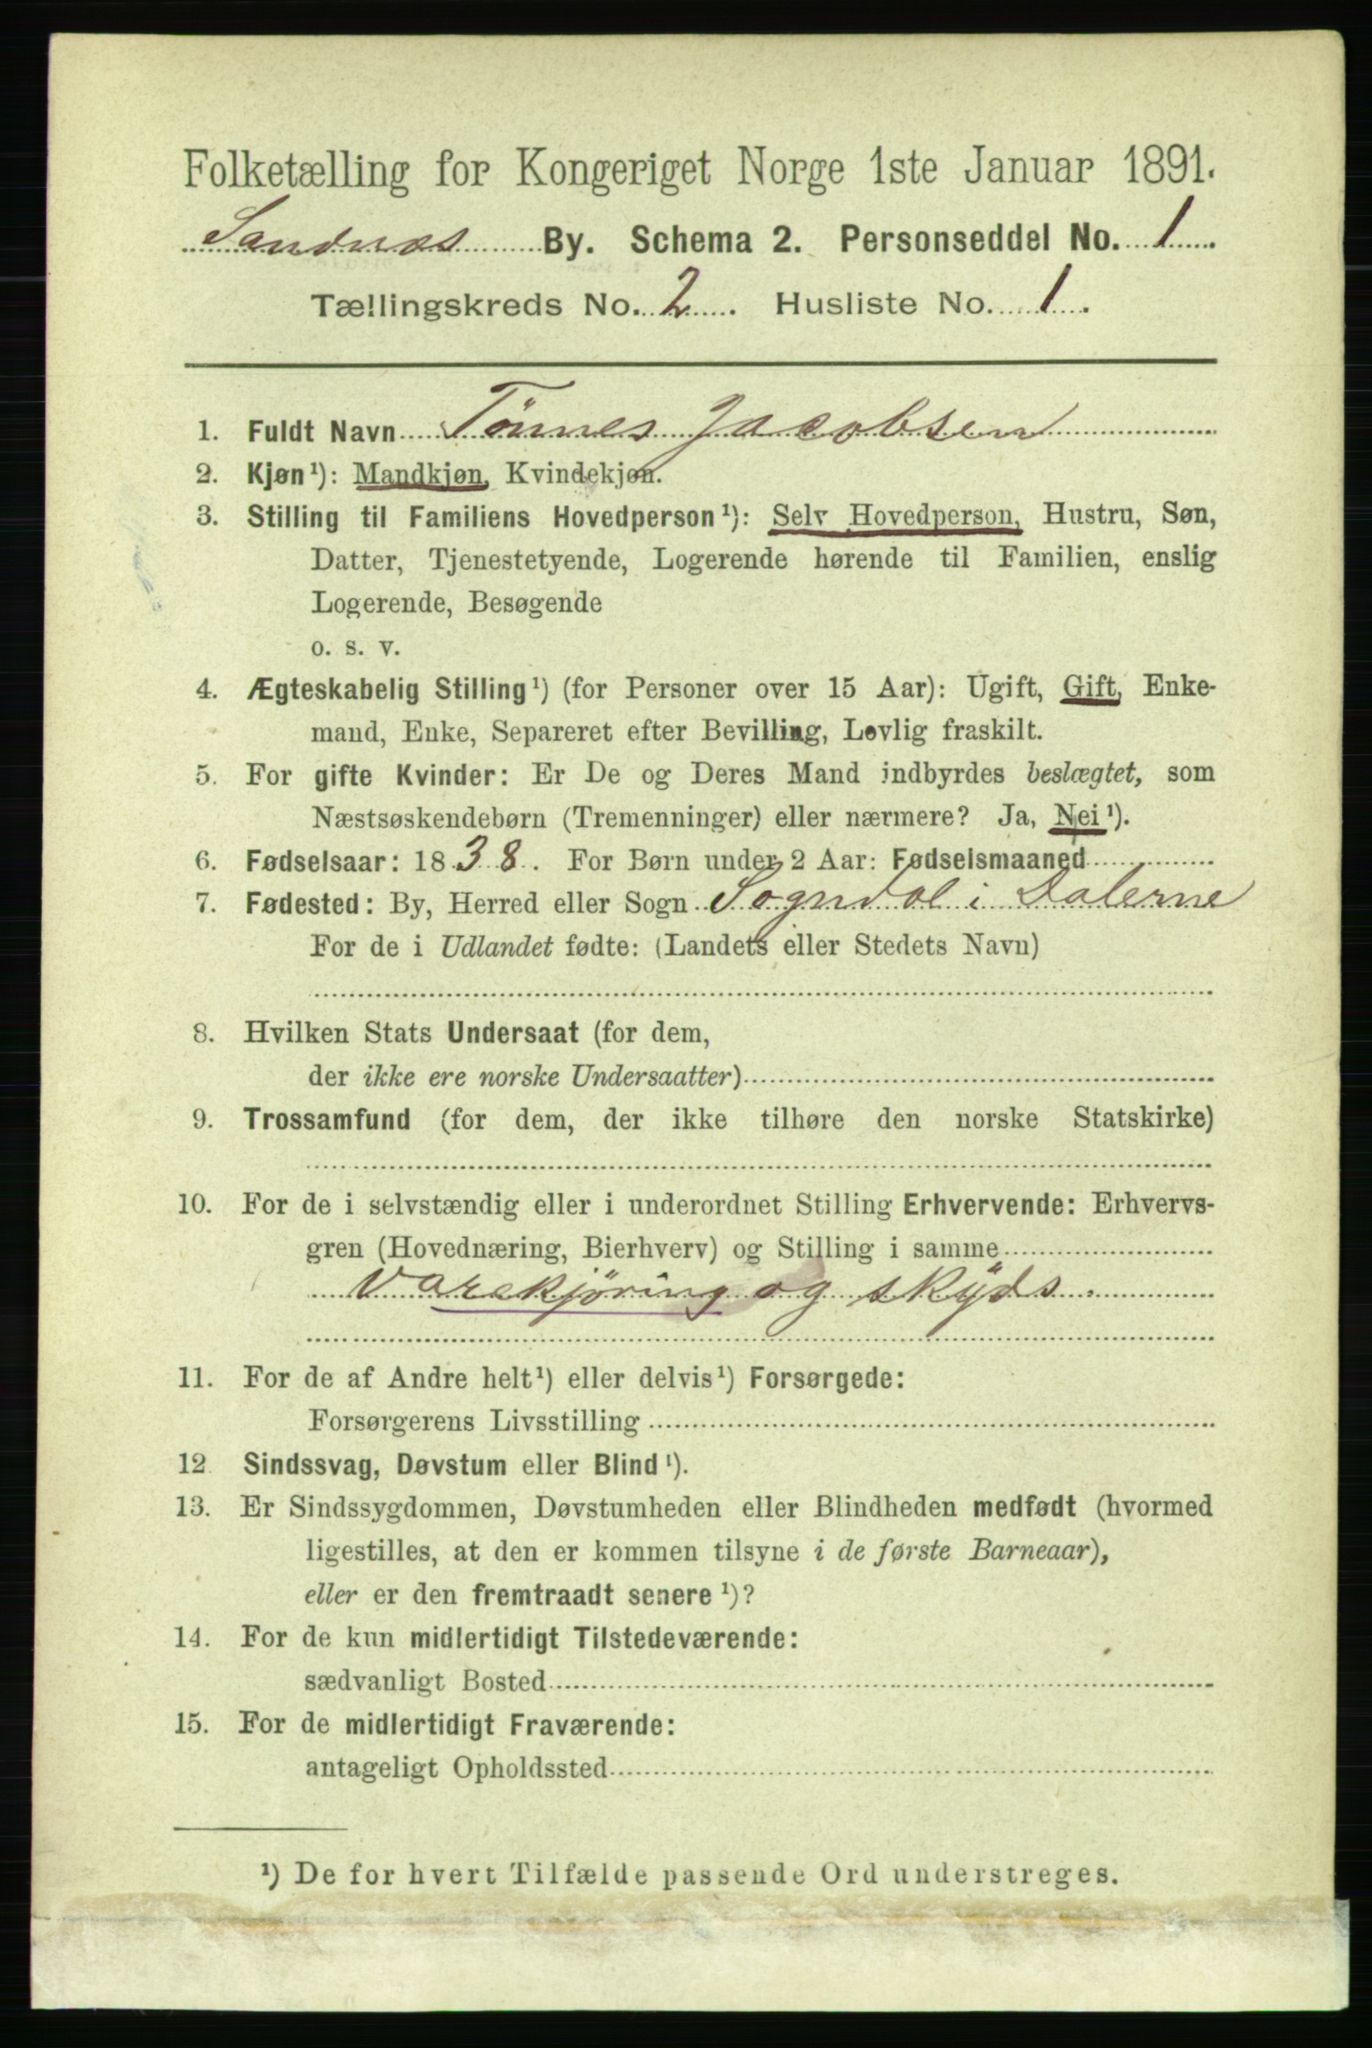 Folketælling for Kongeriget Norge 1ste Januar 1891.
Sandnæs By. Schema 2. Personseddel No. 1
Tællingskreds No. 2. Husliste No. 1.
1. Fuldt Navn Tönnes Jacobsen
2. Kjøn¹): Mandkjøn, Kvindekjøn.
3. Stilling til Familiens Hovedperson¹): Selv Hovedperson, Hustru, Søn,
Datter, Tjenestetyende, Logerende hørende til Familien, enslig
Logerende, Besøgende
o. s. v.
4. Ægteskabelig Stilling¹) (for Personer over 15 Aar): Ugift, Gift, Enke-
mand, Enke, Separeret efter Bevilling, Lovlig fraskilt.
5. For gifte Kvinder: Er De og Deres Mand indbyrdes beslægtet, som
Næstsøskendebørn (Tremenninger) eller nærmere? Ja, Nei¹).
6. Fødselsaar: 1838. For Børn under 2 Aar: Fødselsmaaned
7. Fødested: By, Herred eller Sogn Sogndal i Dalerne
For de i Udlandet fødte: (Landets eller Stedets Navn)
8. Hvilken Stats Undersaat (for dem,
der ikke ere norske Undersaatter)
9. Trossamfund (for dem, der ikke tilhøre den norske Statskirke)
10. For de i selvstændig eller i underordnet Stilling Erhvervende: Erhvervs-
gren (Hovednæring, Bierhverv) og Stilling i samme
Varekjöring og skÿds.
11. For de af Andre helt¹) eller delvis¹) Forsørgede:
Forsørgerens Livsstilling
12 Sindssvag, Døvstum eller Blind¹).
13. Er Sindssygdommen, Døvstumheden eller Blindheden medfødt (hvormed
ligestilles, at den er kommen tilsyne i de første Barneaar),
eller er den fremtraadt senere¹)?
14. For de kun midlertidigt Tilstedeværende:
sædvanligt Bosted
15. For de midlertidigt Fraværende:
antageligt Opholdssted
¹) De for hvert Tilfælde passende Ord understreges.